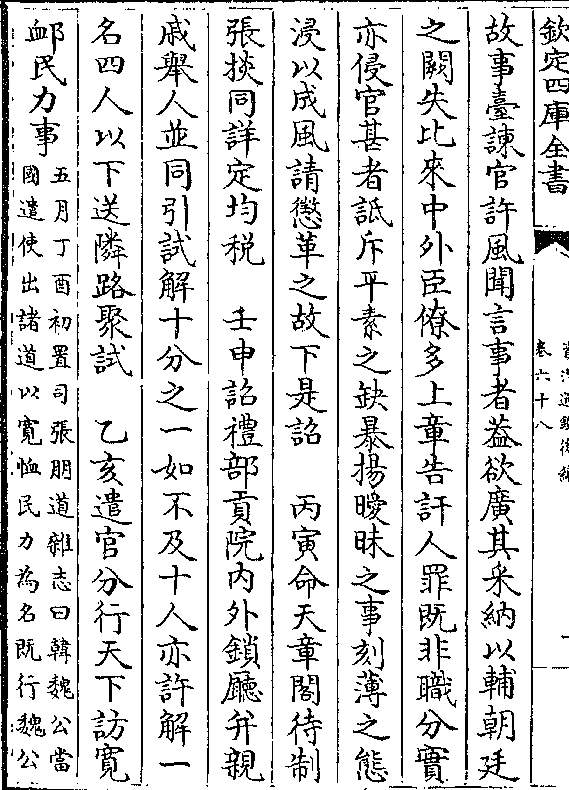 欽定四庫全書
卷六十八
故事臺諫官許風聞言事者葢欲廣其采納以輔朝廷
之闕失比來中外臣僚多上章告訐人罪既非職分實
亦侵官甚者詆斥平素之缺暴揚曖昧之事刻薄之態
浸以成風請懲革之故下是詔　丙寅命天章閣待制
張掞同詳定均税　壬申詔禮部貢院内外鎖廳并親
戚舉人並同引試解十分之一如不及十人亦許解一
名四人以下送隣路聚試　乙亥遣官分行天下訪寛
䘏民力事
五月丁酉初置司張朋道雜志曰韓魏公當
國遣使出諸道以寛恤民力為名既行魏公